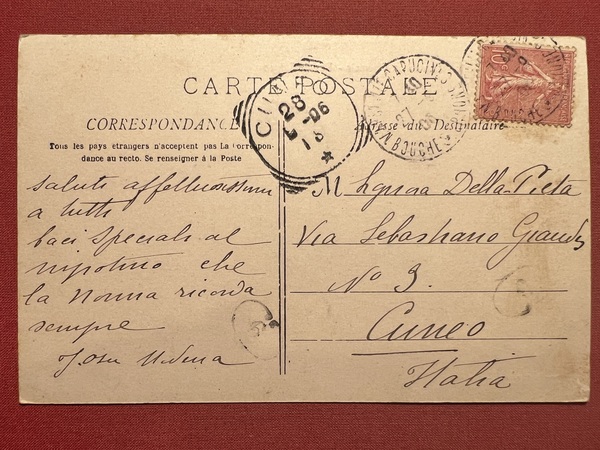 CARTE POSTALE
CORRESPONDANCE
Tous les pays étrangers n'acceptent pas la Correspon-
dance au recto. Se renseigner à la Poste
Adresse du Destinataire
CUNEO
28
06
18
CAPUCINES
BOUCHES
10
saluti affettuosissimi
a tutti
baci speciali al
nipotino che
la nonna ricorda
sempre
M Signora Della-Pieta
Via Sebastiano Grandis
No 3.
Cuneo
Italia